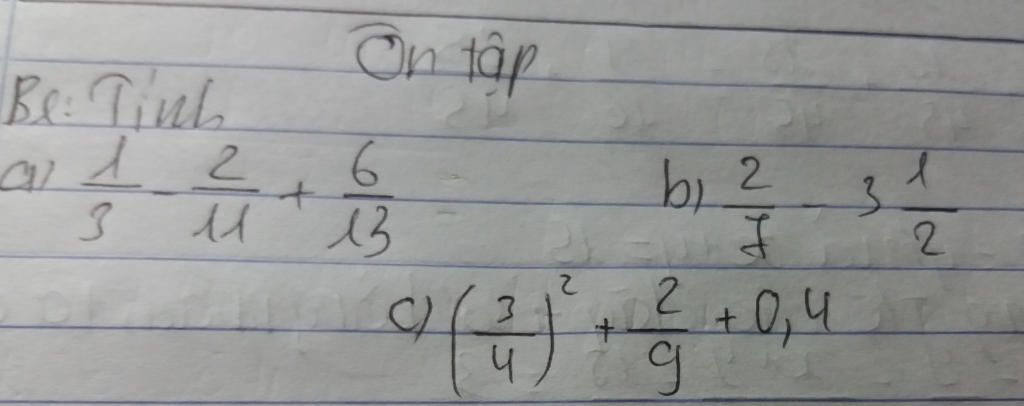 Ôn tập
Bx: Tính
a) 1/3 - 2/11 + 6/13
b) 2/7 - 3 1/2
c) (3/4)² + 2/9 + 0,4